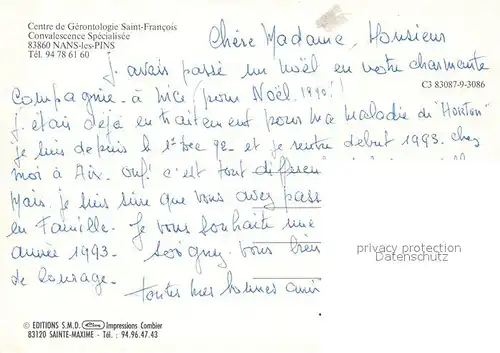 Centre de Gérontologie Saint-François
Convalescence Spécialisée
83860 NANS-les-PINS
Tél. 94 78 61 60
Chère Madame, Monsieur
j'avais passé un noël en votre charmante
C3 83087-9-3086
Compagnie - à Nice, pour Noël. 1990!!
j'étais déjà en traitement pour ma maladie de "HORTON"
je suis depuis le 1er Dec 92 - et je rentre debut 1993. chez
moi à Aix. ouf! c'est tout différen
Mais je suis sûre que vous avez pass
en Famille. Je vous souhaite une
privacy protection
Datenschutz
année 1993. Soignez vous bien
de courage.
Toutes mes bonnes ami
© EDITIONS S.M.D. Impressions Combier
83120 SAINTE-MAXIME - Tél. : 94.96.47.43